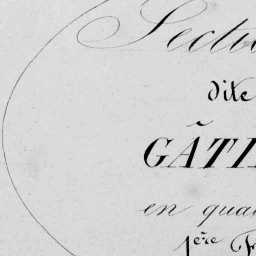 Sectio
dite
GĂTI
en qua
1ère F